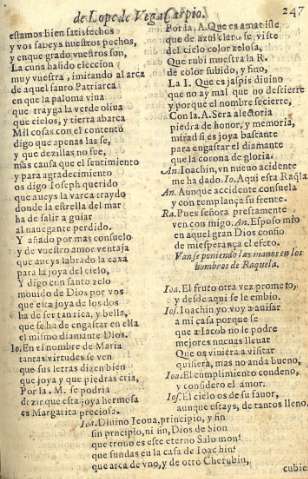 de Lope de Vega Carpio. 247
estamos bien satisfechos
y vos sabeys nuestros pechos,
y en que grado vuestros son,
La cuna ha sido eleccion
muy vuestra, imitando al arca
de aquel santo Patriarca
en que la paloma vina
que trayga la verde oliua
que cielos, y tierra abarca
Mil cosas con el contento
digo que apenas las se,
y que dezillas no fue,
mas causa que el sentimiento
y para agradecimiento
os digo Ioseph querido
que aueys la varca traydo
donde la estrella del mar
ha de salir a guiar
al nauegante perdido.
Y añado por mas consuelo
y de vuestro amor ventaja
que aueys labrado la caxa
para la joya del cielo,
Y digo con santo zelo
mouido de Dios por vos
que esta joya de los dos
ha de ser tan rica, y bella,
que se ha de engastar en ella
el mismo diamante Dios.
Io. En el nombre de Maria
tantas virtudes se ven
que sus letras dizen bien
que joya y que piedras cria,
Por la. M. se podria
dezir que esta joya hermosa
es Margarita preciosa.
Por la, A. Que es amatiste
que de azul claro se viste
del cielo color zelosa,
Que rubi muestra la R.
de color subido, y fino,
La I. Que es jaspis diuino
que no ay mal que no destierre
y porque el nombre se cierre,
Con la. A. Sera alectoria
piedra de honor, y memoria,
mirad si es joya bastante
para engastar el diamante
que la corona de gloria.
An. Ioachin, vn nueuo accidente
me ha dado. Io. Aqui està Raqĩa
An. Aunque accidente consuela
y con templança su frente.
Ra. Pues señora prestamente
ven con migo. An. Esposo mio
en aquel gran Dios confio
de mi esperança el efeto.
Vanse poniendo las manos en los
hombros de Raquela.
Ioa. El fruto otra vez prometo,
y desde aqui se le embio.
Ios. Ioachin yo voy a auisar
a mi casa porque se
que a Iacob no le podre
mejores nueuas lleuar
Que os viniera a visitar
quisiera, mas no anda bueno,
Ioa. El cumplimiento condeno,
y considero el amor.
Ios. El cielo os de su fauor,
aunque estays, de tantos lleno.
Ioa. Diuino Icona, principio, y fin
sin principio, ni fin, Dios de Sion
que trono es este eterno Salomon?
que fundas en la casa de Ioachin?
que arca de vno, y de otro Cherubin,
cubie